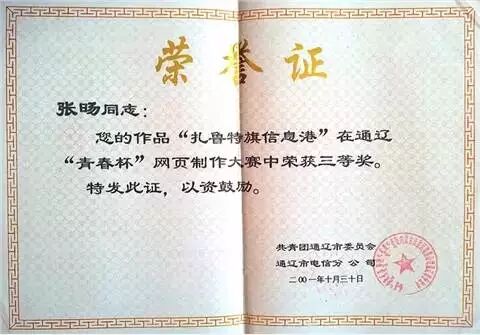 荣誉证
张旸同志：
您的作品“扎鲁特旗信息港”在通辽
“青春杯”网页制作大赛中荣获三等奖。
特发此证，以资鼓励。
共青团通辽市委员会
通辽市电信分公司
二00一年十月三十日